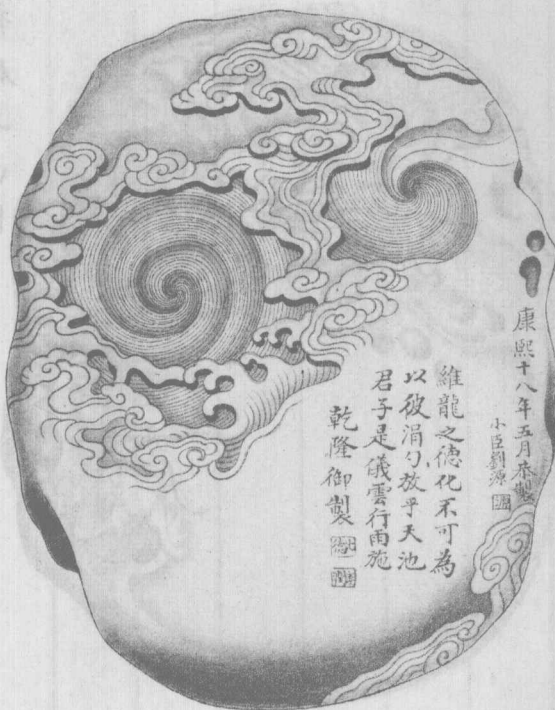 康熙十八年五月恭製
小臣劉源
維龍之德化不可為
以彼涓勺放乎天池
君子是儀雲行雨施
乾隆御製